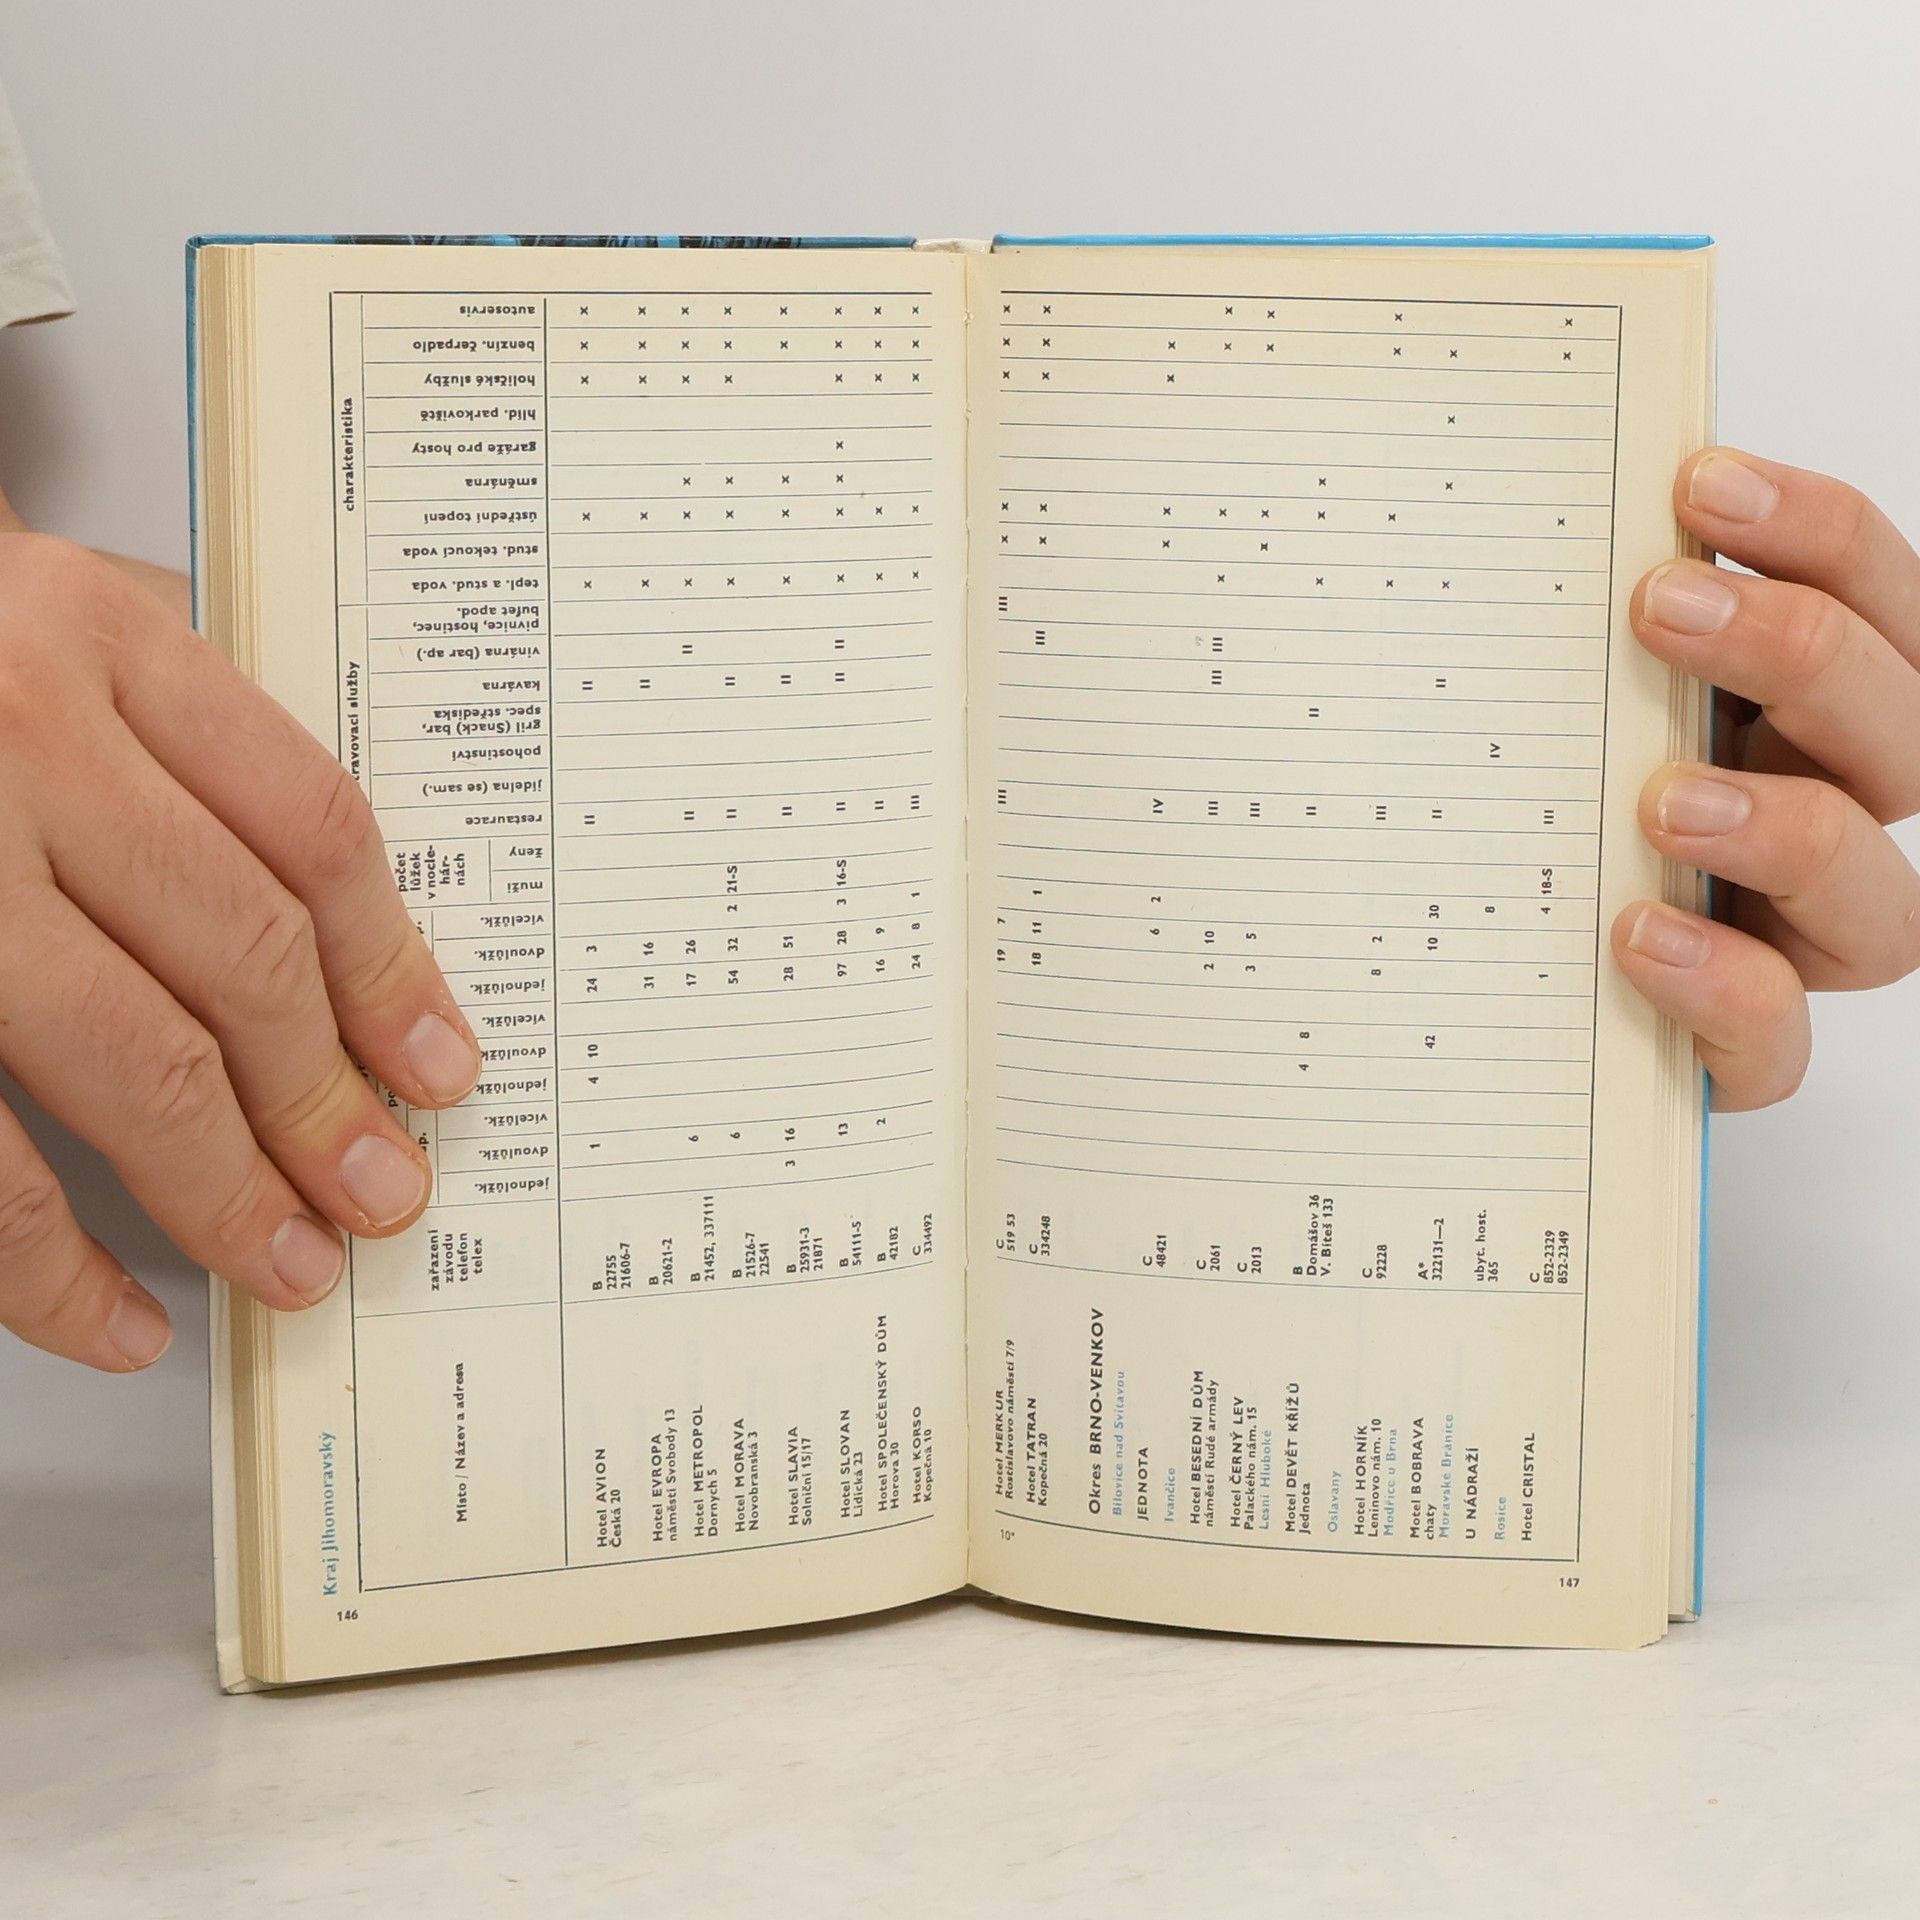 146
Kraj Jihomoravský
Místo / Název a adresa
zařazení
závodu
telefon
telex
jednolůžk.
dvoulůžk.
vícelůžk.
jednolůžk.
dvoulůžk.
vícelůžk.
jednolůžk.
dvoulůžk.
vícelůžk.
počet
lůžek
v nocle-
hár-
nách
muži
ženy
restaurace
jídelna (se sam.)
pohostinství
gril (Snack) bar,
spec. střediska
kavárna
vinárna (bar ap.)
pivnice, hostinec,
bufet apod.
charakteristika
tepl. a stud. voda
stud. tekoucí voda
ústřední topení
směnárna
garáže pro hosty
hlíd. parkoviště
holičské služby
benzin. čerpadlo
autoservis
Hotel AVION B 1 4 10 24 3 II II x x x x x
Česká 20 22755
21606-7
Hotel EVROPA B 31 16 II x x x x x
náměstí Svobody 13 20621-2
Hotel METROPOL B 6 17 26 II II x x x x x x
Dornych 5 21452, 337111
Hotel MORAVA B 6 54 32 2 21-S II II x x x x x x
Novobranská 3 21526-7
22541
Hotel SLAVIA B 3 16 28 51 II II x x x x x
Solniční 15/17 25931-3
21871
Hotel SLOVAN B 13 97 28 3 16-S II II II x x x x x x x
Lidická 23 54111-5
Hotel SPOLEČENSKÝ DŮM B 2 16 9 II x x x x x
Horova 30 42182
Hotel KORSO C 24 8 1 III x x x x x
Kopečná 10 334492
Hotel MERKUR C 19 7 III III x x x x x
Rostislavovo náměstí 7/9 519 53
Hotel TATRAN C 18 11 1 III x x x x x
Kopečná 20 334248
Okres BRNO-VENKOV
Bílovice nad Svitavou
JEDNOTA C 6 2 IV x x x x
48421
Ivančice
Hotel BESEDNÍ DŮM C 2 10 III III III x x x x
náměstí Rudé armády 2061
Hotel ČERNÝ LEV C 3 5 III x x x x
Palackého nám. 15 2013
Lesní Hluboké
Motel DEVĚT KŘÍŽŮ B 4 8 II II x x x
Jednota Domášov 36
V. Bíteš 133
Oslavany
Hotel HORNÍK C 8 2 III x x x x
Leninovo nám. 10 92228
Modřice u Brna
Motel BOBRAVA A* 42 10 30 II II x x x x
chaty 322131—2
Moravské Bránice
U NÁDRAŽÍ ubyt. host. 8 IV
365
Rosice
Hotel CRISTAL C 1 4 18-S III x x x x
852-2329
852-2349
10*
147